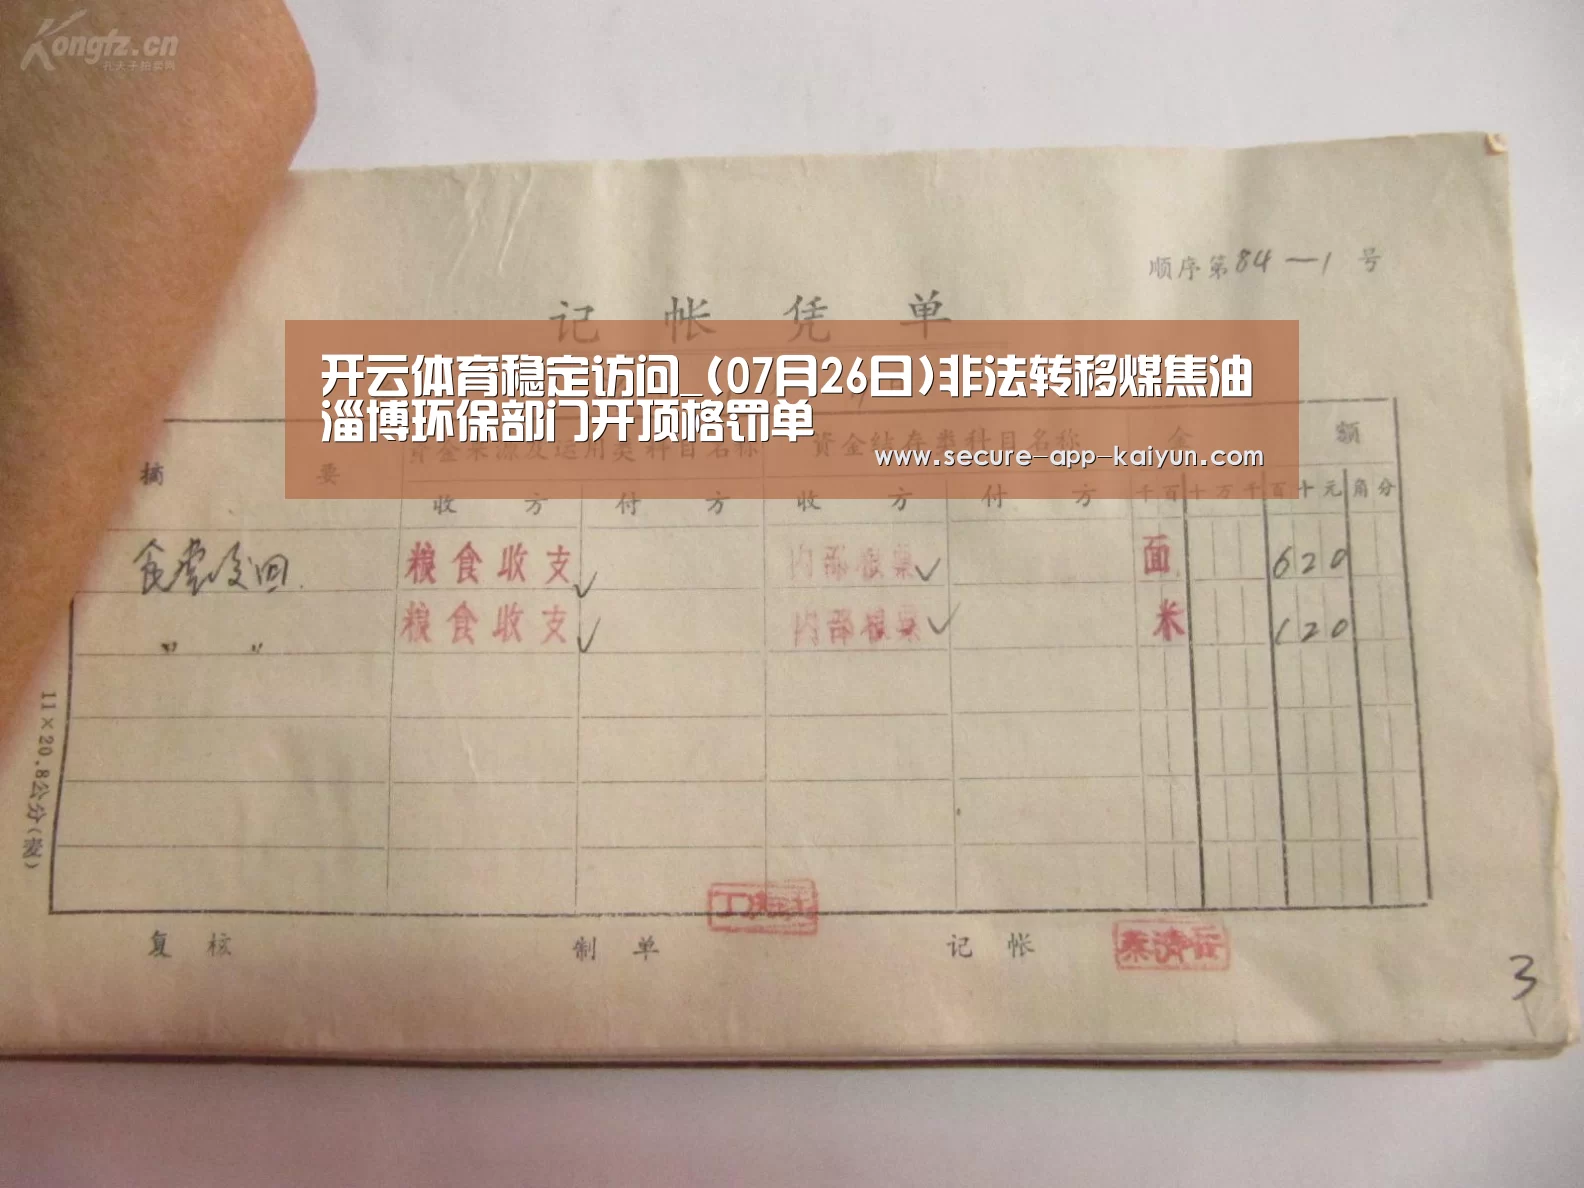 Kongfz.cn
孔夫子拍卖网
顺序第84—1号
记帐凭单
开云体育稳定访问_(07月26日)非法转移煤焦油
淄博环保部门开顶格罚单
www.secure-app-kaiyun.com
摘要 资金来源及运用类科目名称 资金结存类科目名称 金额
收方 付方 收方 付方 千百十万千百十元角分
粮食收支 内部粮票 面 620
〃 〃 粮食收支 内部粮票 米 120
11×20.8公分
复核 制单 记帐
3